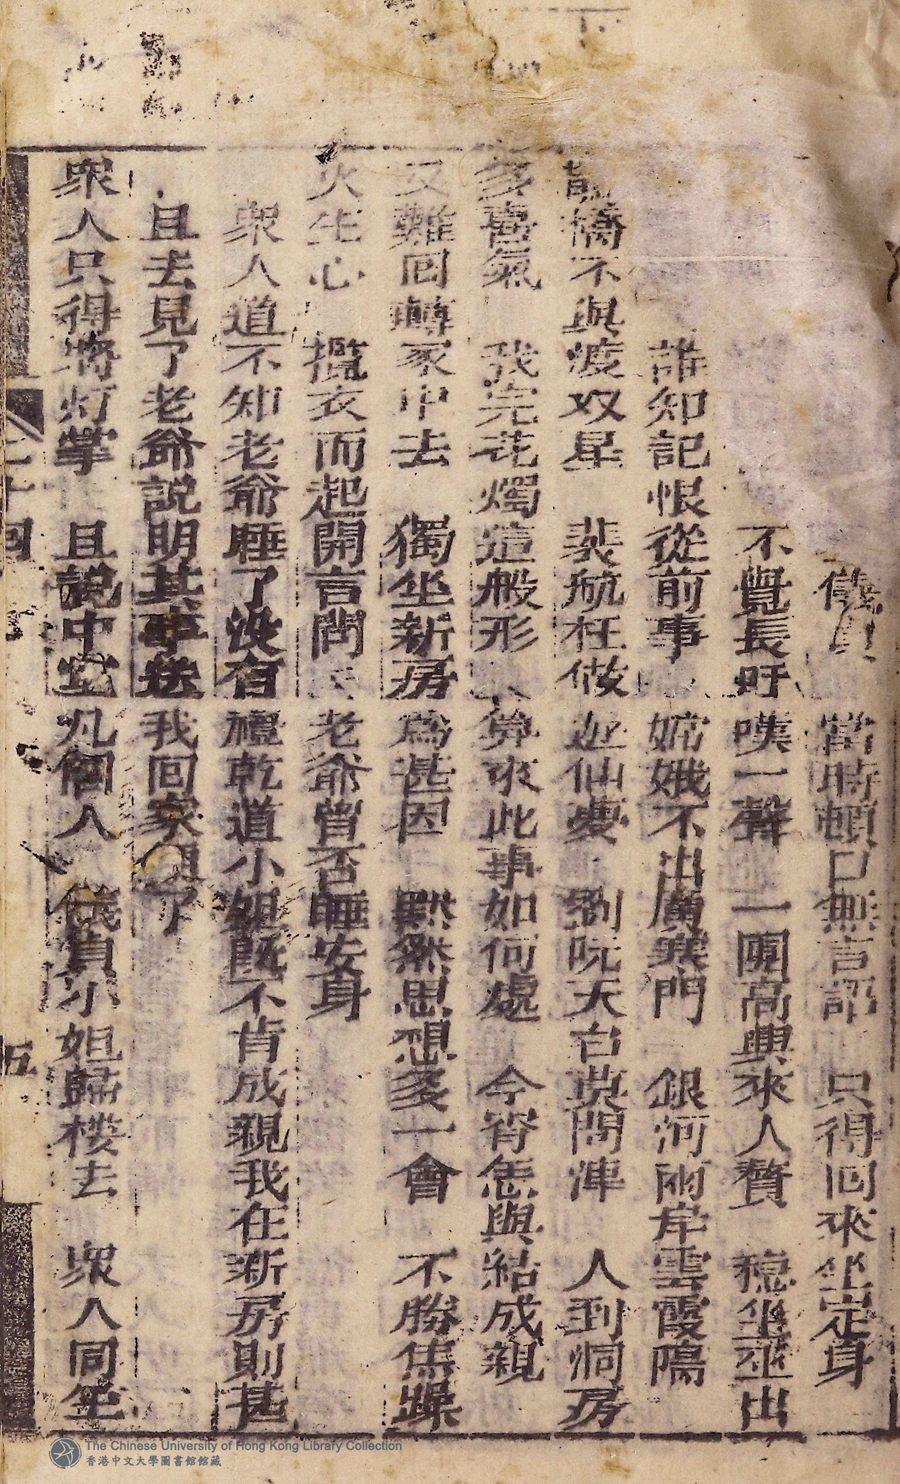 儀貞　當時頓口無言語　只得回來坐定身
不覺長吁嘆一聲　一團高興來人贅　穩坐巫出
誰知記恨從前事　嫦娥不出廣寒門　銀河兩岸雲霞隔
鵲橋不與渡双星　裴航枉做遊仙夢　劉阮天台莫問津　人到洞房
多喜氣　我完花燭這般形　算來此事如何處　今宵怎與結成親
又難回轉家中去　獨坐新房為甚因　默然思想多一會　不勝焦躁
火生心　攬衣而起開言問　老爺曾否睡安身
衆人道不知老爺睡了没有禮乾道小姐既不肯成親我在新房則甚
且去見了老爺説明其事送我回家便了
衆人只得將灯掌　且說中堂凡個人　儀貞小姐歸樓去　衆人同坐
回
五
The Chinese University of Hong Kong Library Collection
香港中文大學圖書館館藏